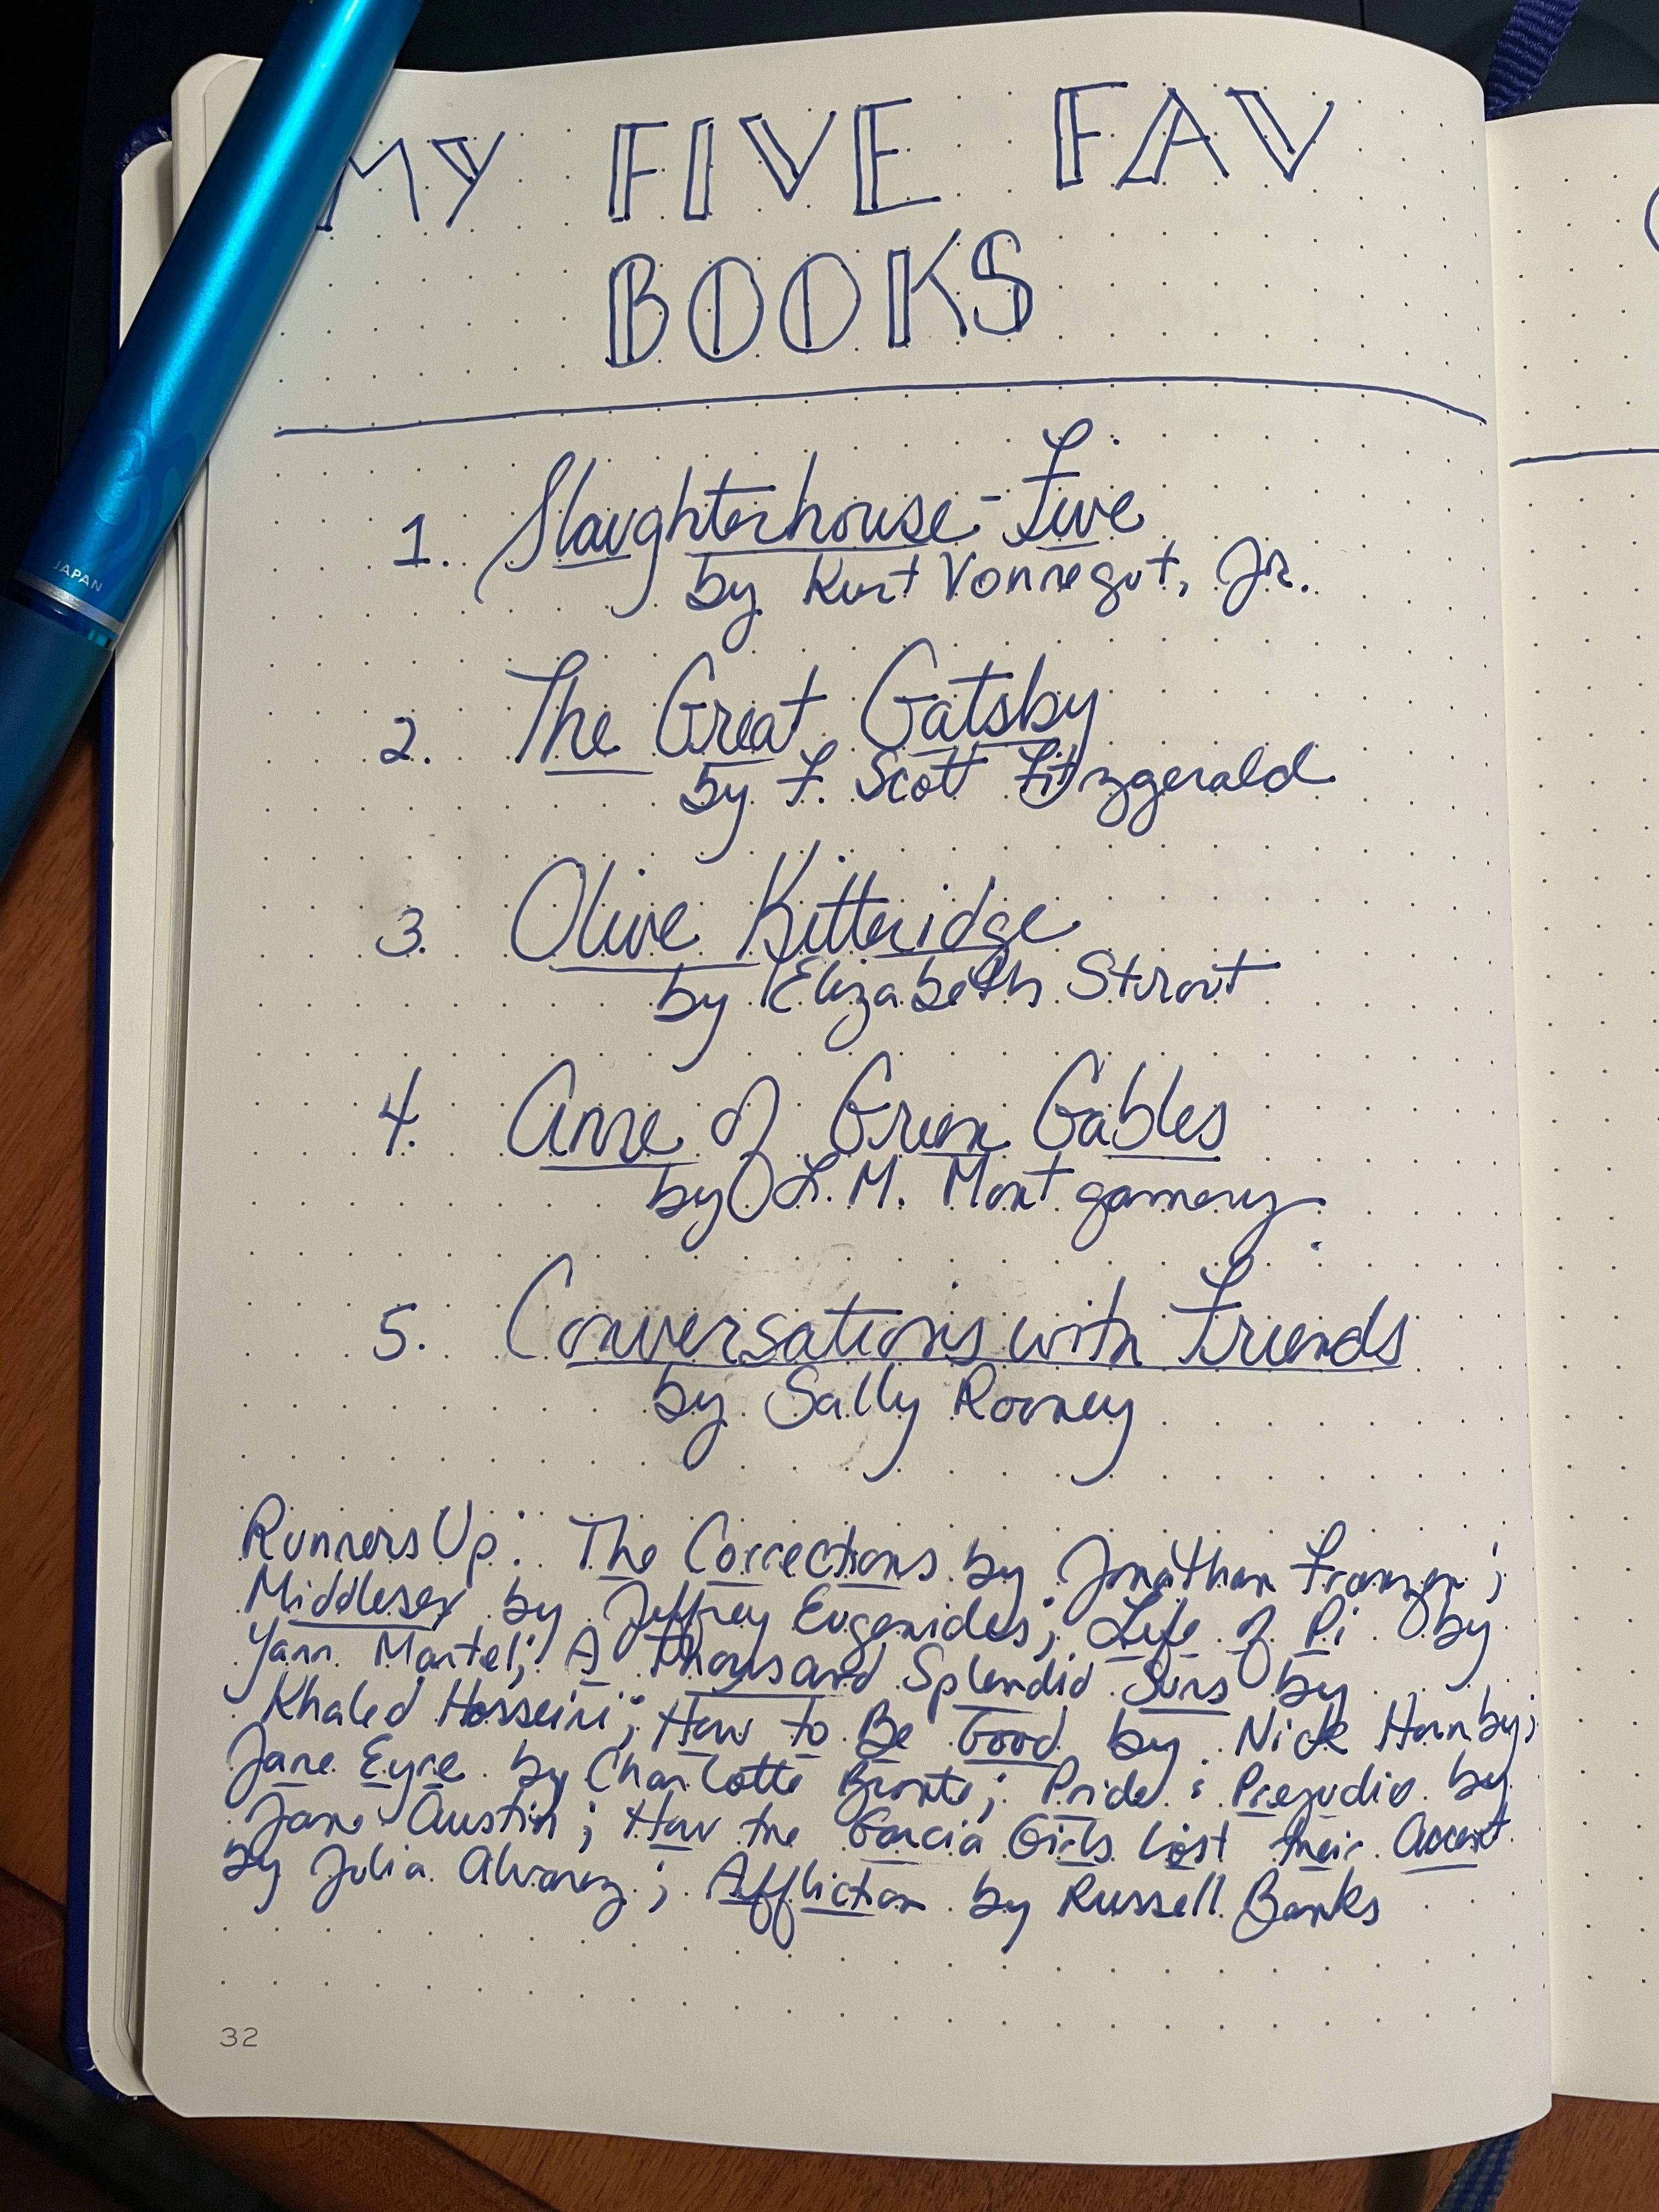 MY FIVE FAV
BOOKS
JAPAN
1. Slaughterhouse-Five
by Kurt Vonnegut, Jr.
2. The Great Gatsby
by F. Scott Fitzgerald
3. Olive Kitteridge
by Elizabeth Strout
4. Anne of Green Gables
by L.M. Montgomery
5. Conversations with Friends
by Sally Rooney
Runners Up: The Corrections by Jonathan Franzen;
Middlesex by Jeffrey Eugenides; Life of Pi by
Yann Martel; A Thousand Splendid Suns by
Khaled Hosseini; How to Be Good by Nick Hornby;
Jane Eyre by Charlotte Bronte; Pride & Prejudic by
Jane Austin; How the Garcia Girls Lost their Accent
by Julia Alvarez; Affliction by Russell Banks
32